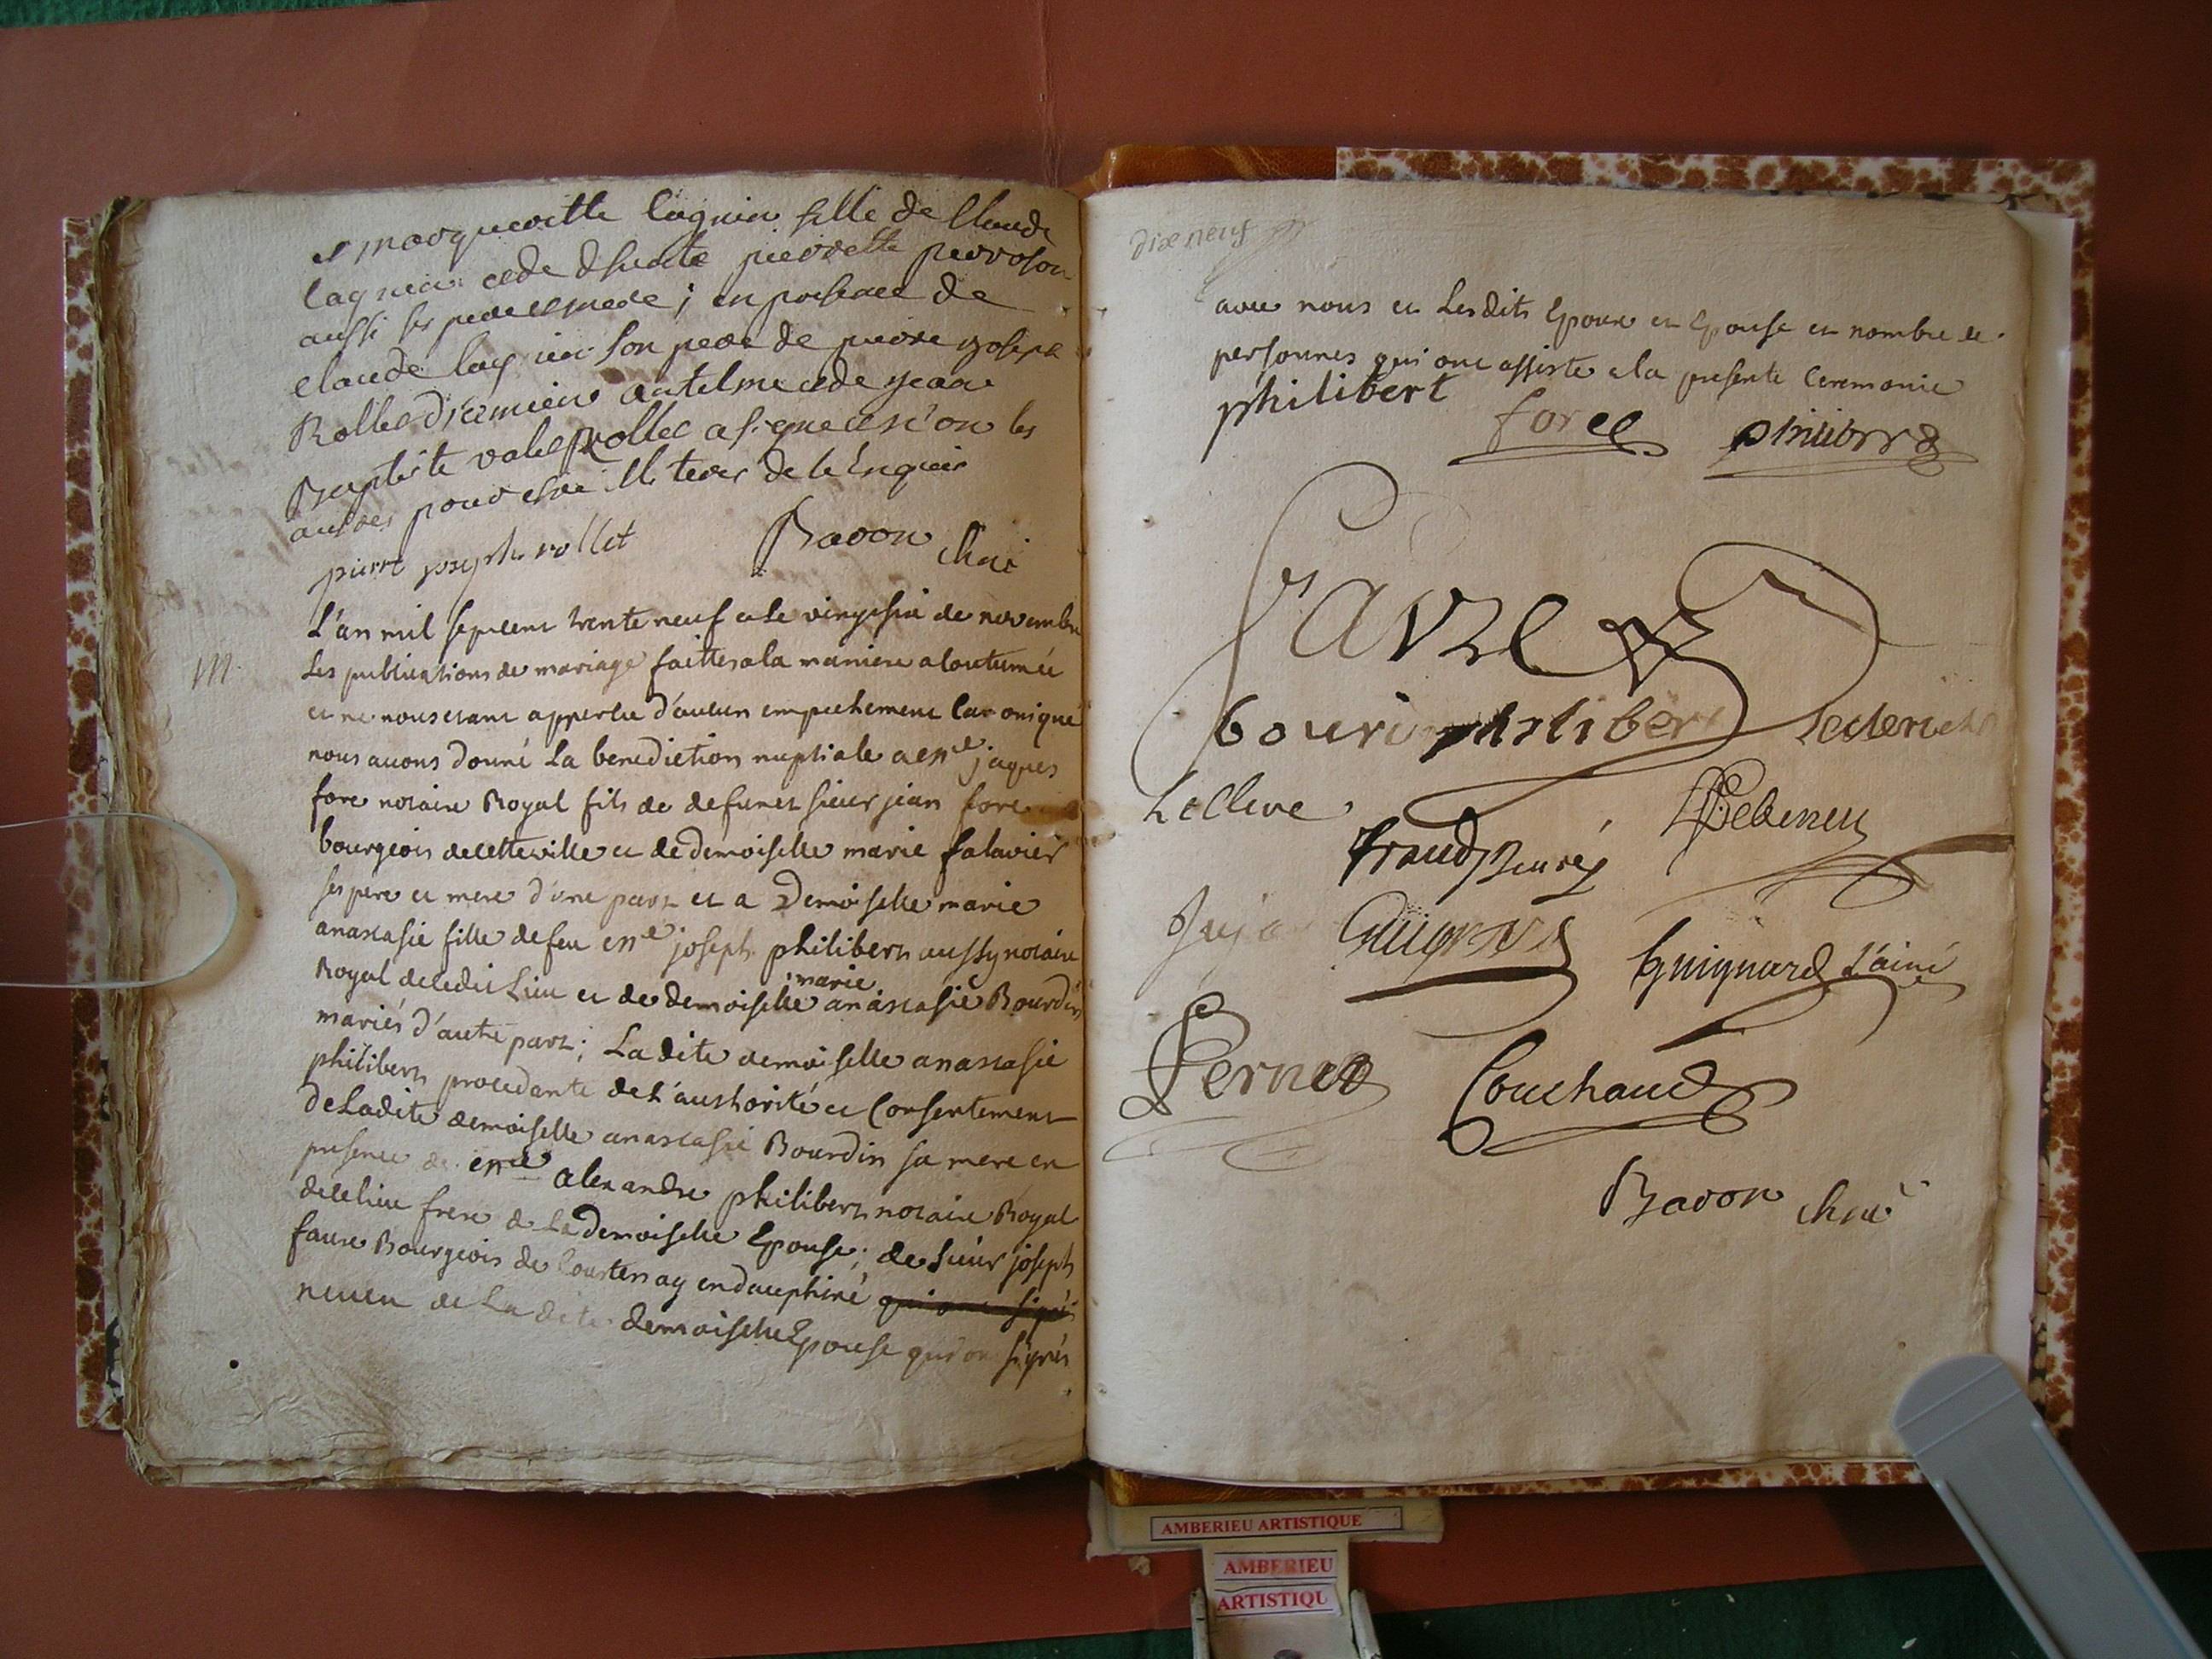 et margueritte lagnieu fille de Claude
lagnieu et de pierrette
aussi ses pere et mere ; en presence de
claude lagnieu son pere de pierre joseph
Rollet antelme et de jean
Baptiste Rollet a signe et non les
autres pour estre illiteres de ce Enquis
pierre joseph rollet Bavon
L'an mil sept cent trente neuf et le vingt six de novembre
m.
Les publications de mariage faittes a la maniere acoutumée
et ne nous etant apperçu d'aucun empechement Canonique
nous avons donné La benediction nuptiale a me jaques
fore notaire Royal fils de defunct sieur jean fore
bourgeois de cette ville et de demoiselle marie falavier
ses pere et mere d'une part et a Demoiselle marie
anastasie fille de feu me joseph philibert aussy notaire
marie
Royal de cedit Lieu et de demoiselle anastasie Bourdin
mariés d'autre part ; La dite demoiselle anastasie
philibert procedante de L'authorité et Consentement
de Ladite demoiselle anastasie Bourdin sa mere en
presence de me alexandre philibert notaire Royal
de ce lieu frere de La demoiselle Epouse ; de sieur joseph
faure Bourgeois de Courtenay en dauphiné qui ont signé
neveu de La dite demoiselle Epouse qui ont signés
dix neuf
avec nous et Lesdits Epoux et Epouse en nombre de
personnes qui ont assisté a la presente Ceremonie
philibert foree philibert
favre
philibert
Leclerc
Guignard Guignard L'ainé
Pernet Couchaud
Bavon
AMBERIEU ARTISTIQUE
AMBERIEU
ARTISTIQU